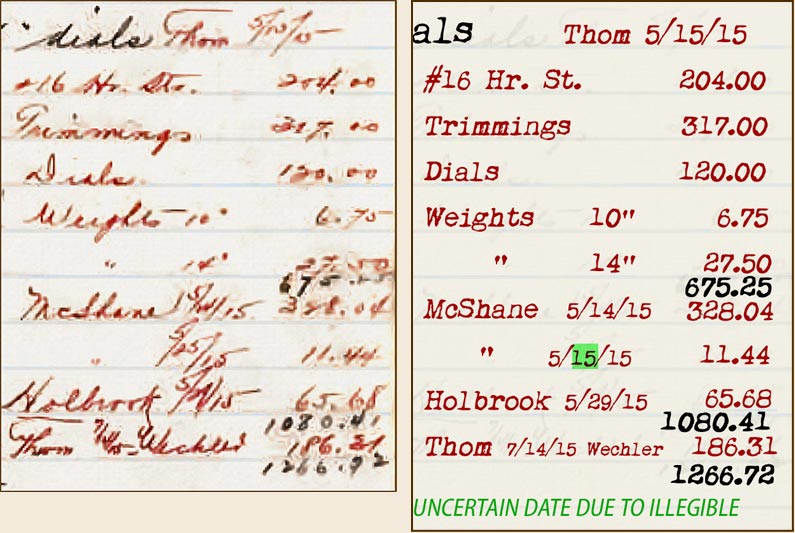 dials Thom 5/15/15
#16 Hr. St. 204.00
Trimmings 317.00
Dials. 120.00
Weights 10" 6.75
" 14" 27.50
675.25
McShane 5/14/15. 328.04
" /15 11.44
Holbrook 5/29/15 65.68
1080.41
Thom 7/14/15 Wechler 186.31
1266.72
als Thom 5/15/15
#16 Hr. St. 204.00
Trimmings 317.00
Dials 120.00
Weights 10" 6.75
" 14" 27.50
675.25
McShane 5/14/15 328.04
" 5/15/15 11.44
Holbrook 5/29/15 65.68
1080.41
Thom 7/14/15 Wechler 186.31
1266.72
UNCERTAIN DATE DUE TO ILLEGIBLE